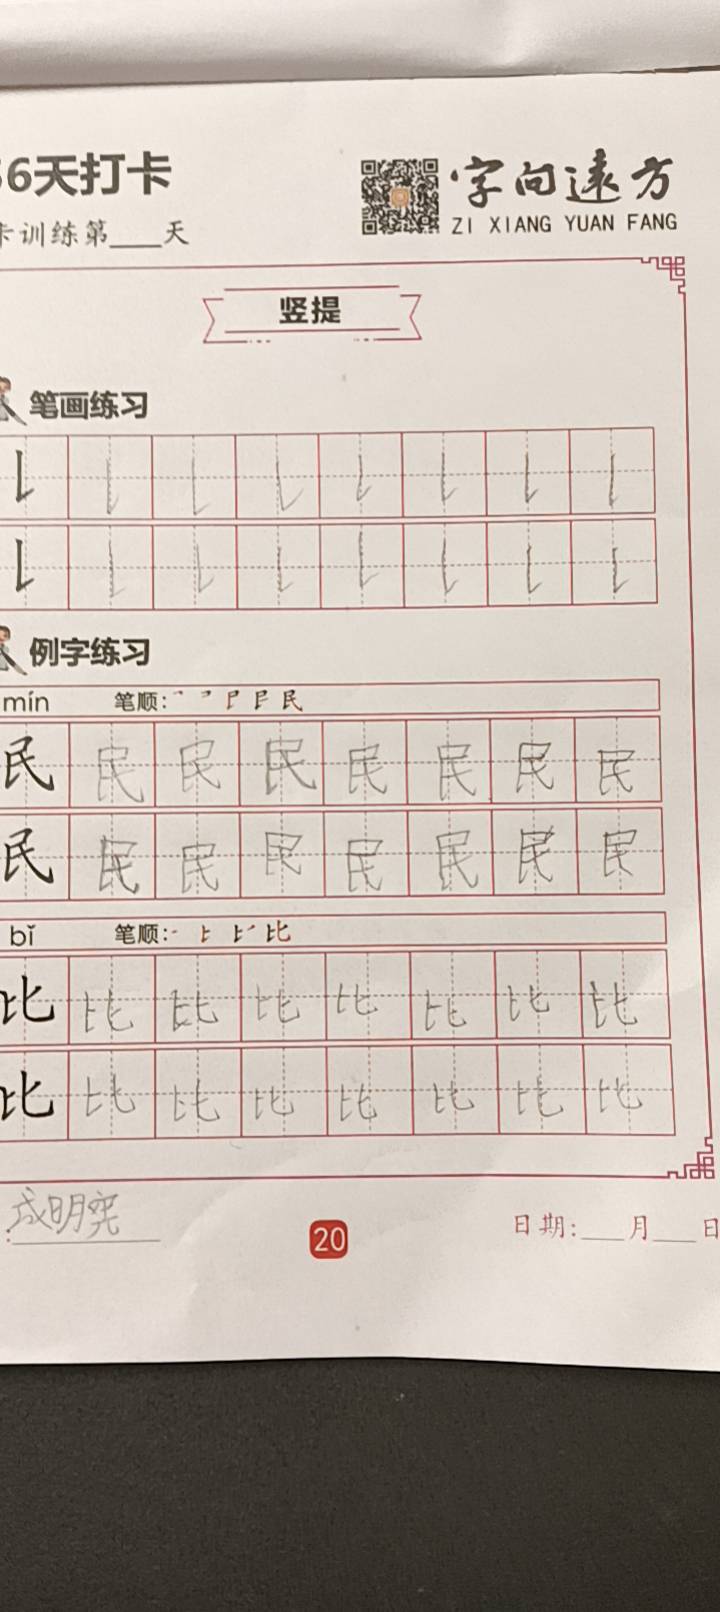 6天打卡
字向遠方
ZI XIANG YUAN FANG
卡训练第____天
竖提
笔画练习
例字练习
mín 笔顺: 民
民 民 民 民 民 民 民 民
民 民 民 民 民 民 民 民
bǐ 笔顺: 比
比 比 比 比 比 比 比 比
比 比 比 比 比 比 比 比
20
日期:____月____日